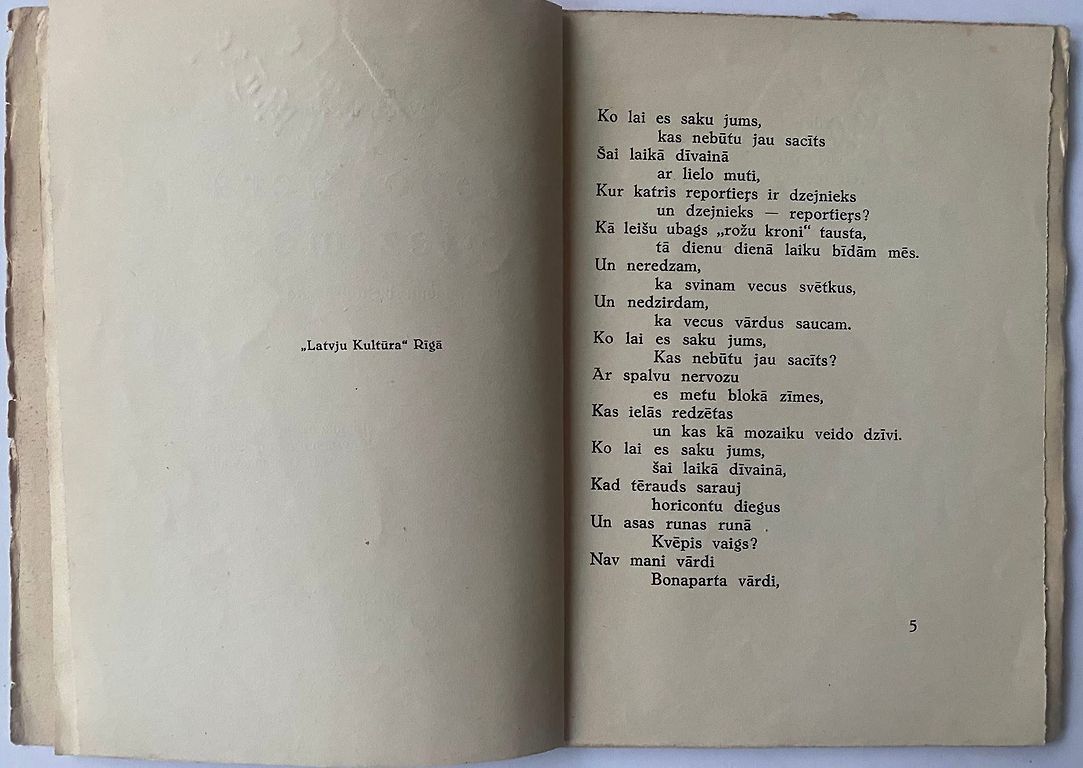 „Latvju Kultūra“ Rīgā
Ko lai es saku jums,
kas nebūtu jau sacīts
Šai laikā dīvainā
ar lielo muti,
Kur katris reportieŗs ir dzejnieks
un dzejnieks — reportieŗs?
Kā leišu ubags „rožu kroni“ tausta,
tā dienu dienā laiku bīdām mēs.
Un neredzam,
ka svinam vecus svētkus,
Un nedzirdam,
ka vecus vārdus saucam.
Ko lai es saku jums,
Kas nebūtu jau sacīts?
Ar spalvu nervozu
es metu blokā zīmes,
Kas ielās redzētas
un kas kā mozaiku veido dzīvi.
Ko lai es saku jums,
šai laikā dīvainā,
Kad tērauds sarauj
horicontu diegus
Un asas runas runā
Kvēpis vaigs?
Nav mani vārdi
Bonaparta vārdi,
5